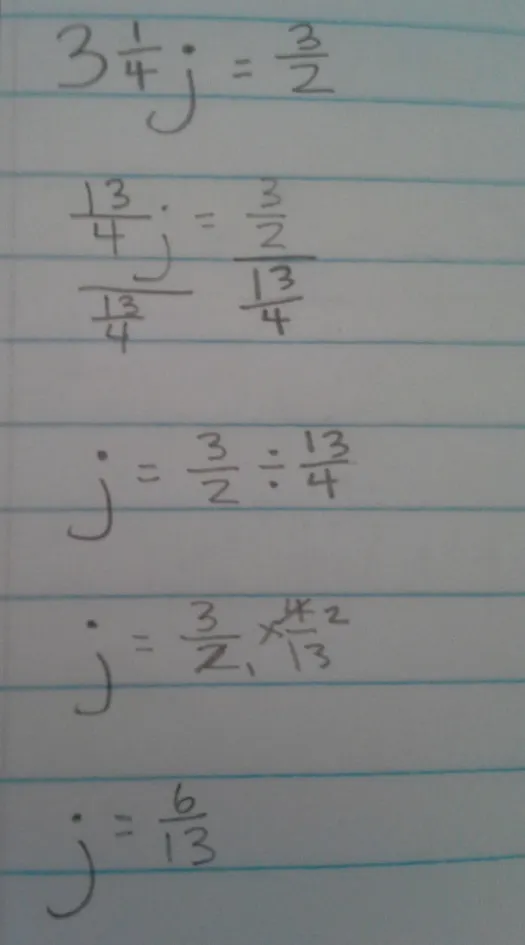 3 1/4 j = 3/2
13/4 j / 13/4 = 3/2 / 13/4
j = 3/2 ÷ 13/4
j = 3/2 1 × 4/13 2
j = 6/13